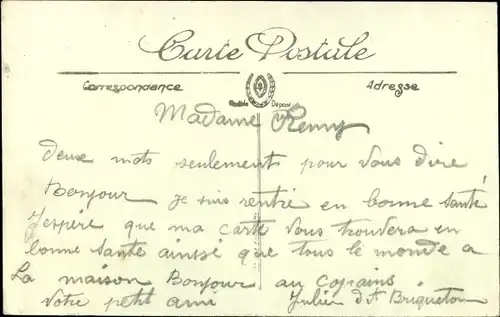 Carte Postale
Correspondance Adresse
Modèle Déposé
Madame Remy
deux mots seulement pour vous dire
Bonjour je suis rentré en bonne santé
J'espère que ma carte vous trouvera en
bonne santé ainssé que tous le monde a
La maison Bonjour au copains
votre petit ami Julien